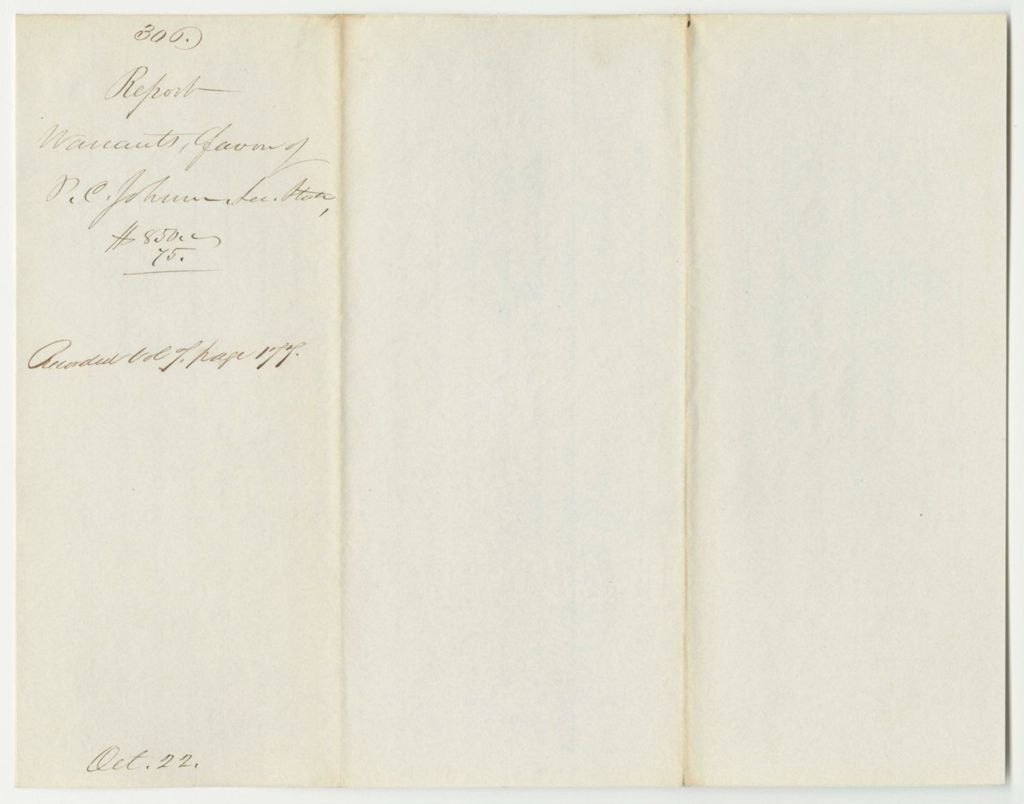 306.
Report
Warrants, favor of
P. C. Johnson Sec. State,
$850..
75.
Recorded Vol 7. page 177.
Oct. 22.